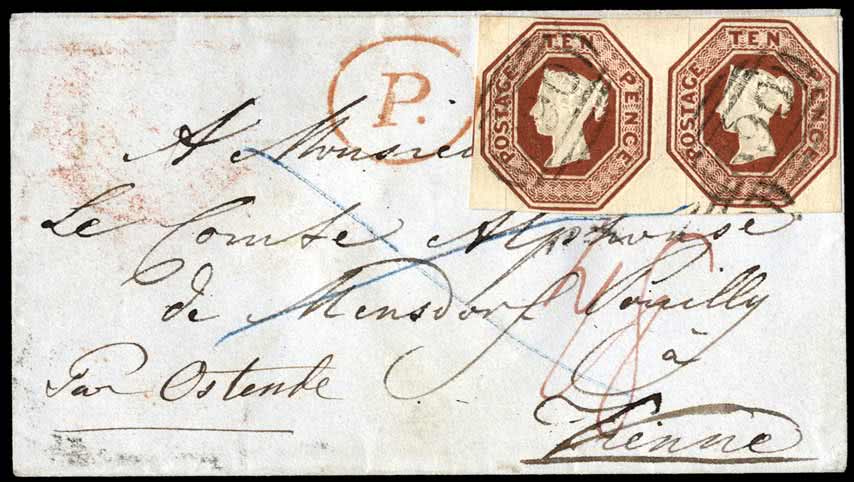 P.
POSTAGE TEN PENCE
POSTAGE TEN PENCE
A Monsie
Le Comte Alphonse
de Mensdorf Pouilly
à
Par Ostende
Vienne